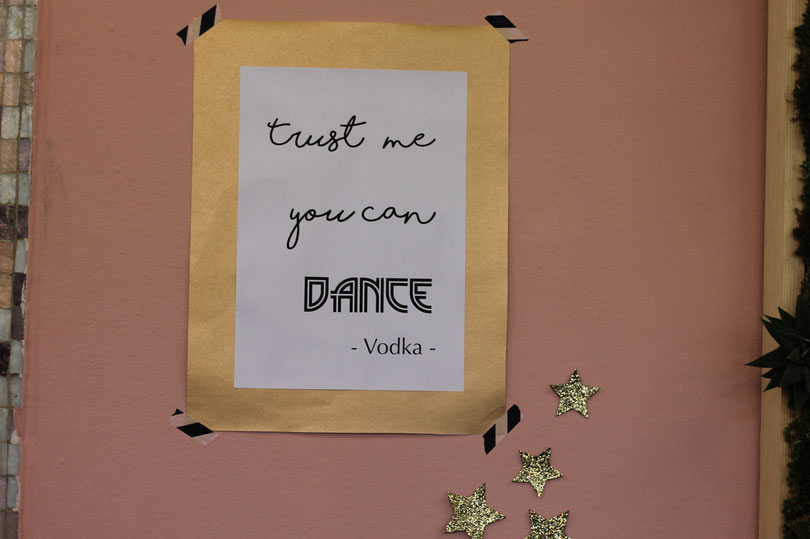 trust me
you can
DANCE
- Vodka -